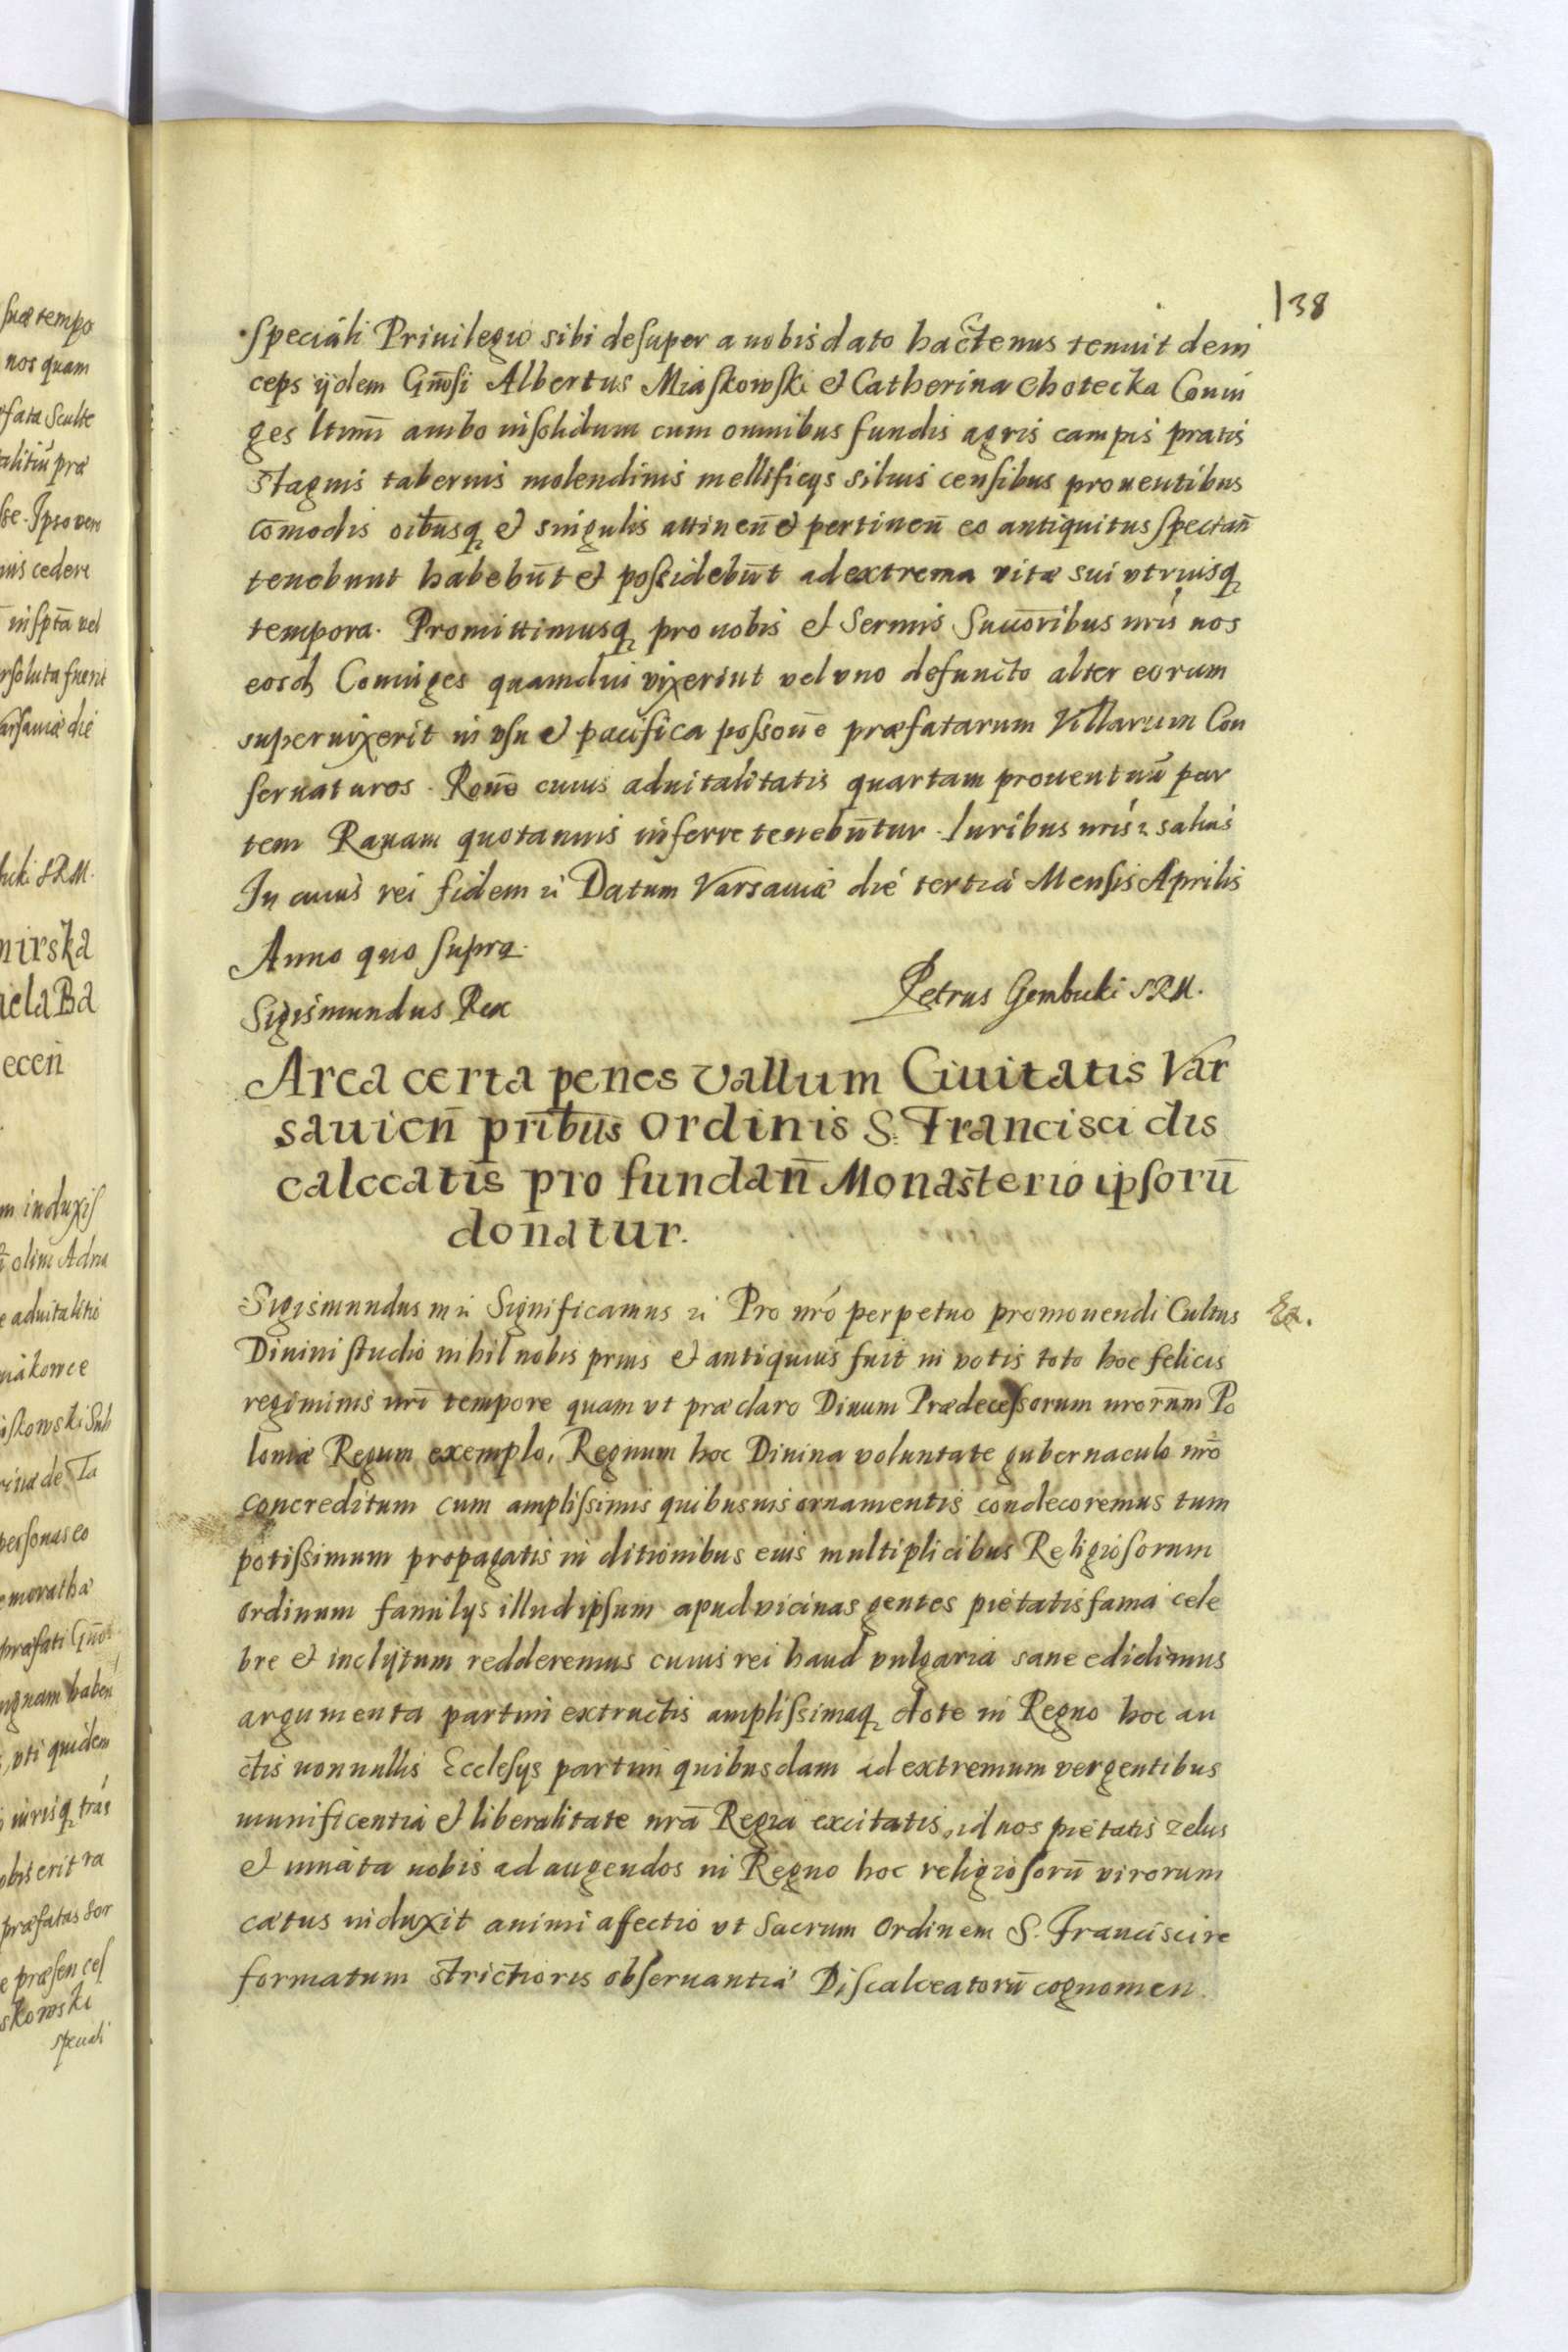 138
speciali Priuilegio sibi desuper a nobis dato hactenus tenuit dein
ceps ijdem Gn̄osi Albertus Miaskowski et Catherina Chotecka Coniu
ges ltimi ambo insolidum cum omnibus fundis agris campis pratis
stagnis tabernis molendinis mellificijs siluis censibus prouentibus
com̄odis oibusq et singulis attineñ et pertineñ eo antiquitus spectañ
tenebunt habebūt et possidebūt ad extrema vitæ sui vtriusq
tempora. Promittimusq pro nobis et Sermis Succoribus nris nos
eosd Coniuges quamdiu vixerint vel vno defuncto alter eorum
superuixerit in vsu et pacifica possone præfatarum Villarum Con
seruaturos. Rone cuius aduitalitatis quartam prouentuū par
tem Rauam quotannis inferre tenebūntur. Iuribus nris r saluis
In cuius rei fidem rc Datum Varsauiæ die tertia Mensis Aprilis
Anno quo supra.
Sigismundus Rex
Petrus Gembicki SRM.
Area certa penes vallum Ciuitatis Var
sauieñ pribus Ordinis S. Francisci dis
calceatis pro fundañ Monasterio ipsorū
donatur.
Sigismundus m rc Significamus rc Pro nro perpetuo promouendi Cultus
Diuini studio nihil nobis prius et antiquius fuit in votis toto hoc felicis
regiminis nri tempore quam vt præclaro Diuum Prædecessorum nrorum Po
loniæ Regum exemplo, Regnum hoc Diuina voluntate gubernaculo nrō
concreditum cum amplissimis quibusuis ornamentis condecoremus tum
potissimum propagatis in ditionibus eius multiplicibus Religiosorum
Ordinum familijs illud ipsum apud vicinas gentes pietatis fama cele
bre et inclijtum redderemus cuius rei haud vulgaria sane edidimus
argumenta partim extructis amplissimaq dote in Regno hoc au
ctis nonnullis Ecclesijs partim quibusdam ad extremum vergentibus
munificentia et liberalitate nrā Regia excitatis, id nos pietatis zelus
et innata nobis ad augendos in Regno hoc religiosorū virorum
cætus induxit animi affectio vt Sacrum Ordinem S. Francisci re
formatum strictioris obseruantiæ Discalceatorū cognomen